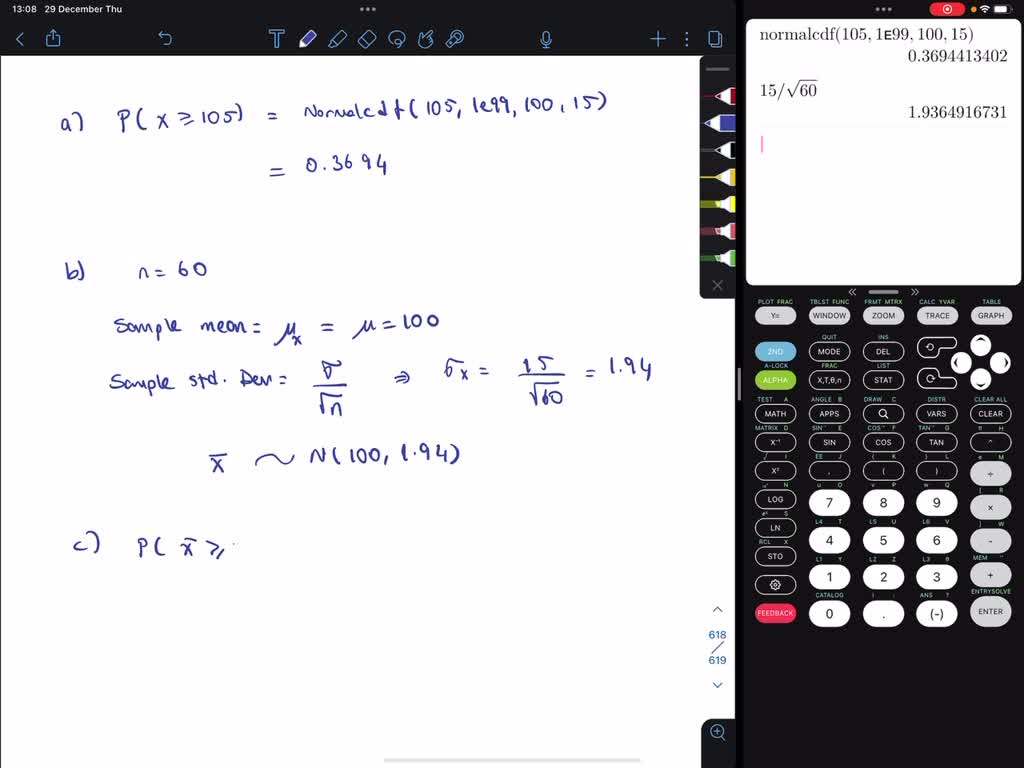 13:08 29 December Thu
a) P( x ≥ 105) = Normalcdf( 105, 1e99, 100, 15)
= 0.3694
b) n = 60
Sample mean = μx = μ = 100
Sample std. Dev = σ/√n ⇒ σx = 15/√60 = 1.94
x̄ ~ N(100, 1.94)
c) P( x̄ ≥
618
619
normalcdf(105, 1ᴇ99, 100, 15)
0.3694413402
15/√60
1.9364916731
PLOT FRAC TBLST FUNC FRMT MTRX CALC YVAR TABLE
Y= WINDOW ZOOM TRACE GRAPH
QUIT INS
2ND MODE DEL
A-LOCK FRAC LIST
ALPHA X,T,θ,n STAT
TEST A ANGLE B DRAW C DISTR CLEAR ALL
MATH APPS VARS CLEAR
MATRIX D SIN⁻¹ E COS⁻¹ F TAN⁻¹ G π H
X⁻¹ SIN COS TAN ^
√ I EE J { K } L e M
X² , ( ) ÷
N u O v P w Q [ R
LOG 7 8 9 ×
S L4 T L5 U L6 V ] W
LN 4 5 6 -
RCL X L1 Y L2 Z L3 θ MEM "
STO 1 2 3 +
CATALOG i : ANS ? ENTRYSOLVE
FEEDBACK 0 . (-) ENTER